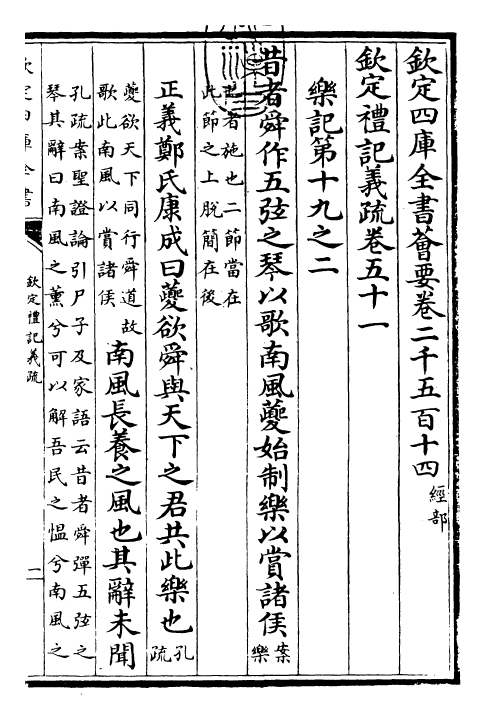 欽定四庫全書薈要卷二千五百十四經部
欽定禮記義疏卷五十一
樂記第十九之二
昔者舜作五弦之琴以歌南風夔始制樂以賞諸侯案樂
也者施也二節當在
此節之上脫簡在後
正義鄭氏康成曰夔欲舜與天下之君共此樂也孔疏
夔欲天下同行舜道故
歌此南風以賞諸侯
南風長養之風也其辭未聞
孔疏案聖證論引尸子及家語云昔者舜彈五弦之
琴其辭曰南風之薰兮可以解吾民之慍兮南風之
欽定四庫全書
欽定禮記義疏
一